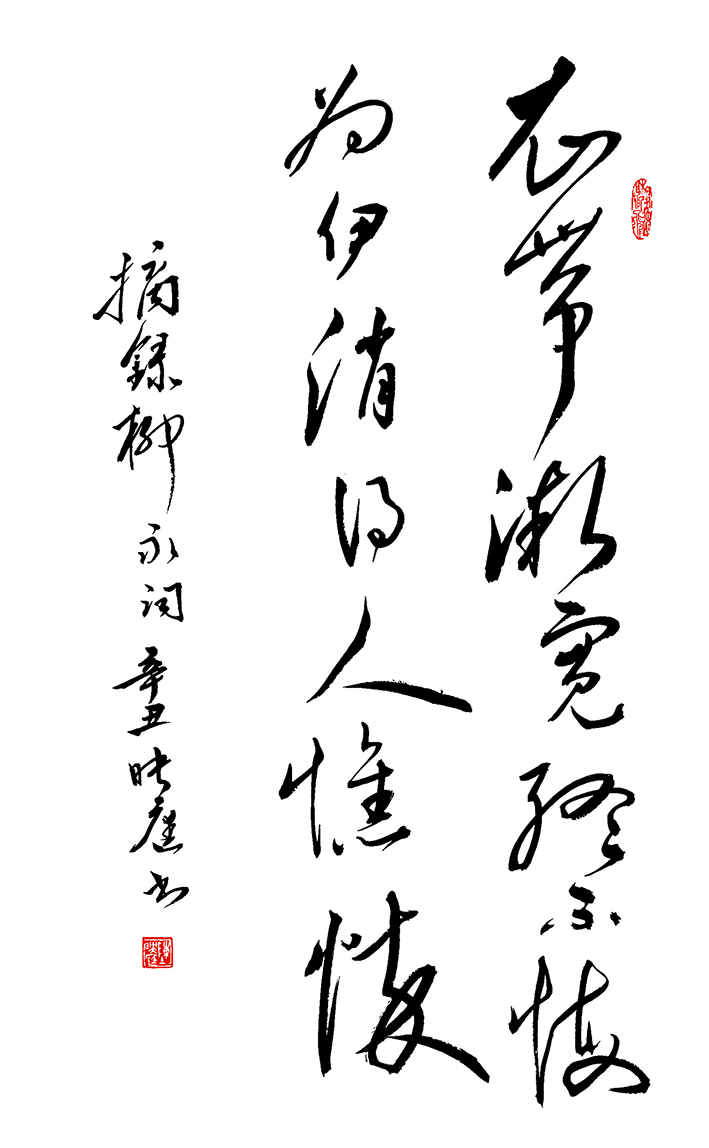 衣带渐宽终不悔
为伊消得人憔悴
摘録柳永词 辛丑映庭书